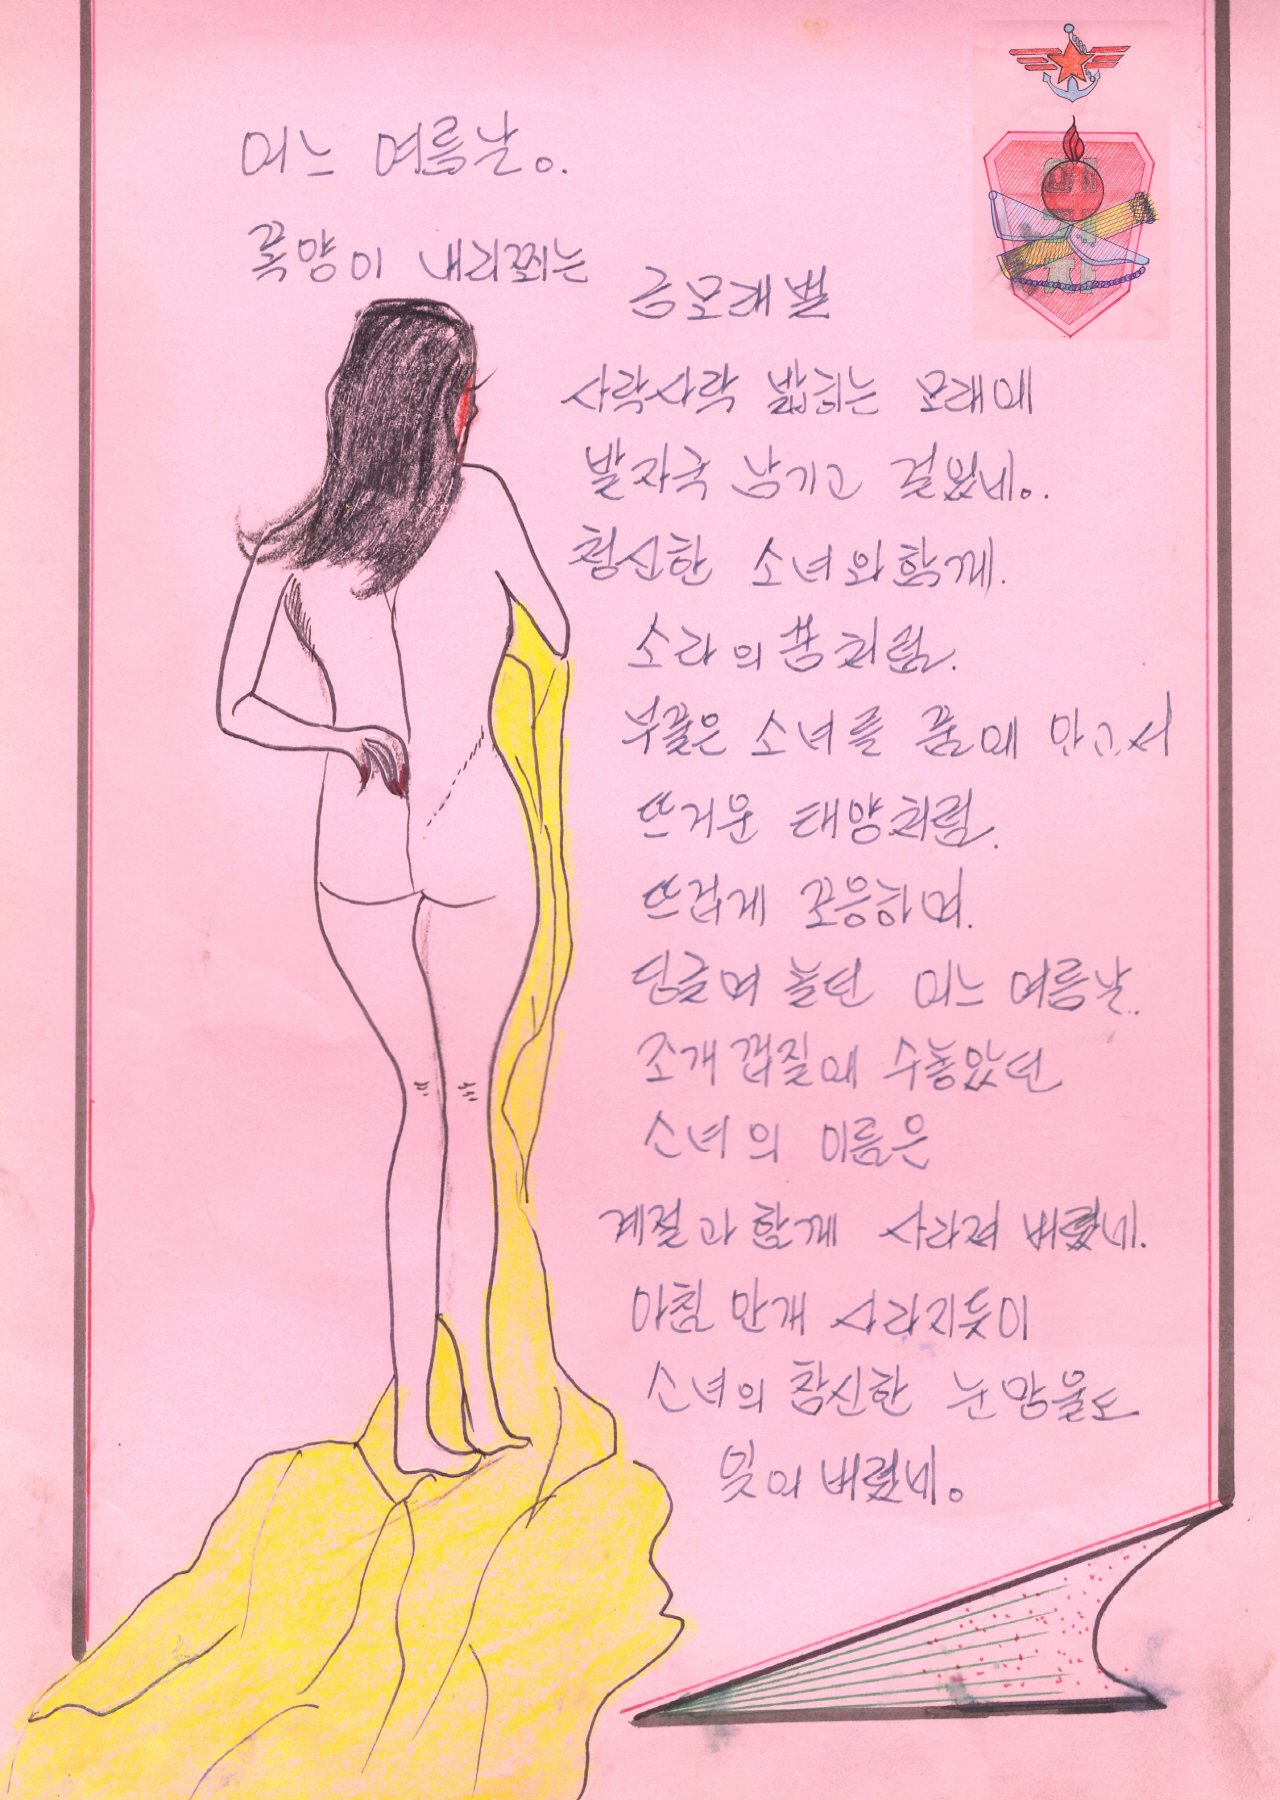 어느 여름날.
폭양이 내리쬐는
금모래벌
사락사락 밟히는 모래에
발자국 남기고 걸었네..
청신한 소녀와 함께.
소라의 꿈처럼.
부풀은 소녀를 품에 안고서
뜨거운 태양처럼.
뜨겁게 포옹하며.
딩굴며 놀던 어느 여름날..
조개껍질에 수놓았던
소녀의 이름은
계절과 함께 사라져 버렸네.
아침 안개 사라지듯이
소녀의 참신한 눈망울도
잊어버렸네.